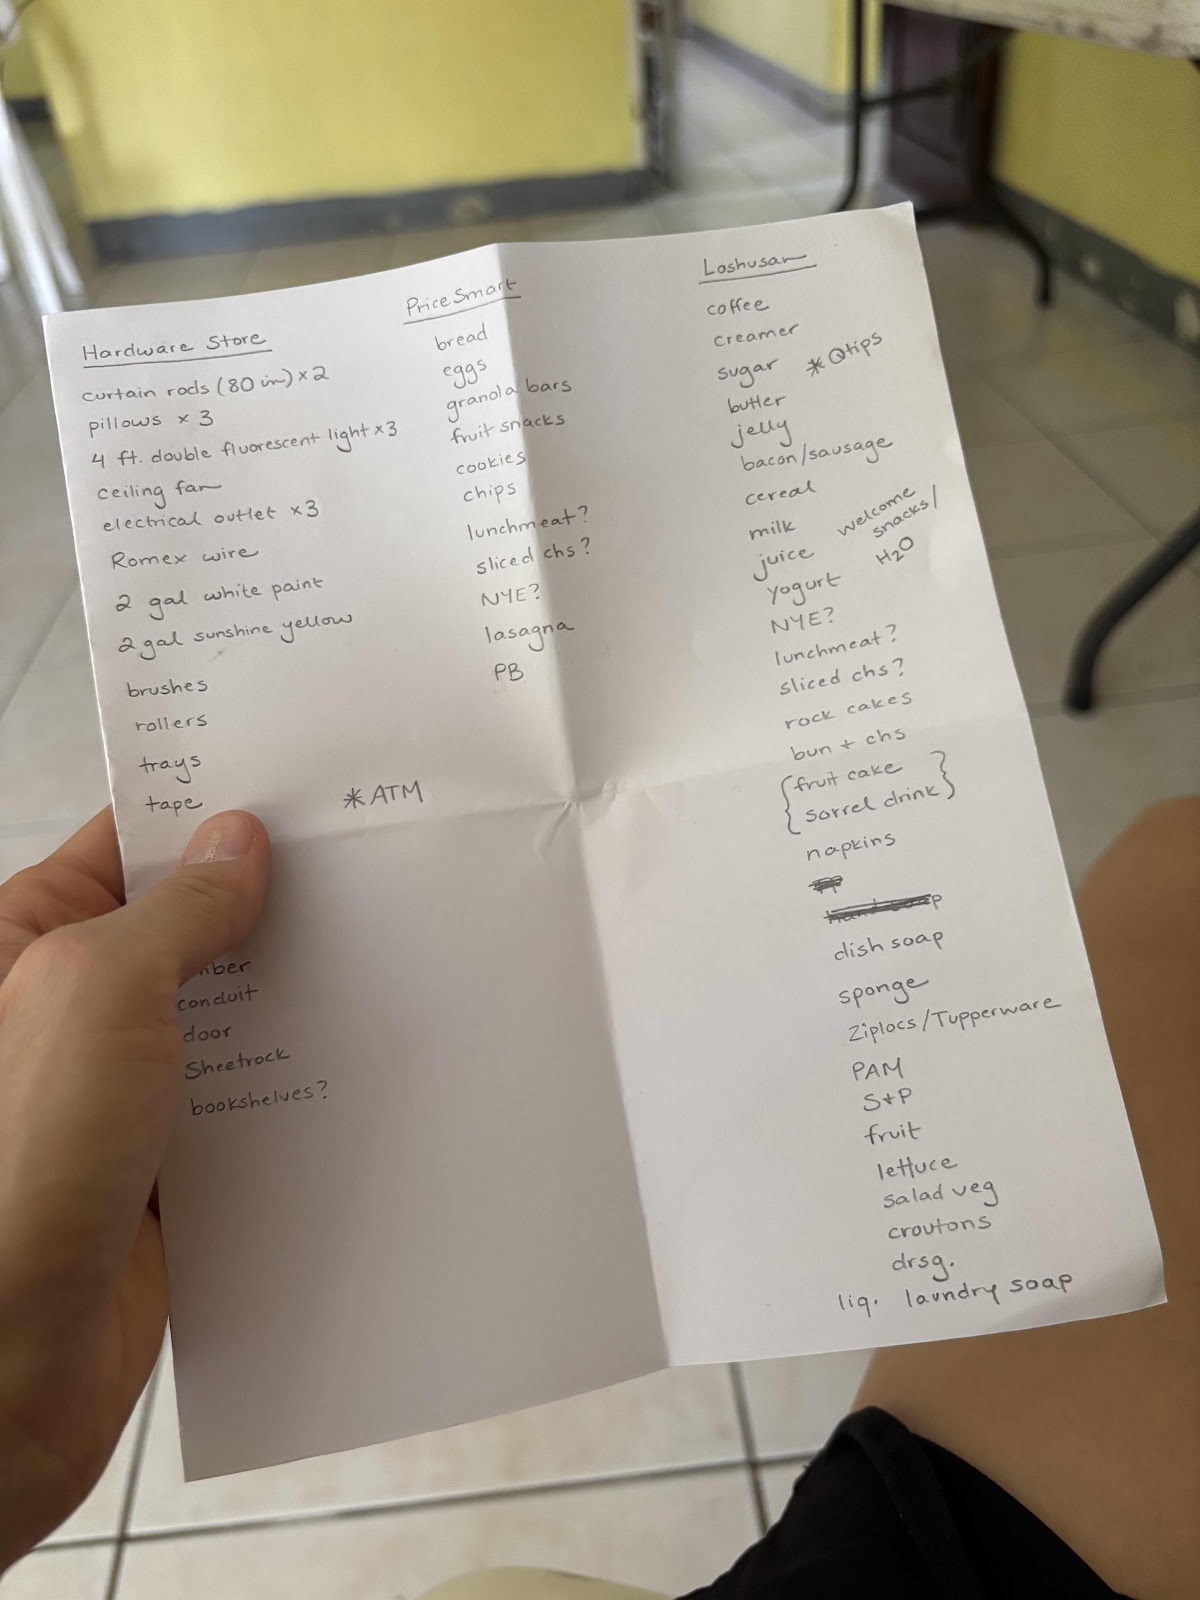 Hardware Store
curtain rods (80 in) x 2
pillows x 3
4 ft. double fluorescent light x 3
ceiling fan
electrical outlet x 3
Romex wire
2 gal white paint
2 gal sunshine yellow
brushes
rollers
trays
tape
conduit
door
Sheetrock
bookshelves?
*ATM
PriceSmart
bread
eggs
granola bars
fruit snacks
cookies
chips
lunchmeat?
sliced chs?
NYE?
lasagna
PB
Loshusan
coffee
creamer
sugar
*Qtips
butter
jelly
bacon/sausage
cereal
milk
juice
welcome
snacks/
H2O
yogurt
NYE?
lunchmeat?
sliced chs?
rock cakes
bun + chs
{fruit cake
sorrel drink}
napkins
dish soap
sponge
Ziplocs/Tupperware
PAM
S+P
fruit
lettuce
salad veg
croutons
drsg.
liq. laundry soap